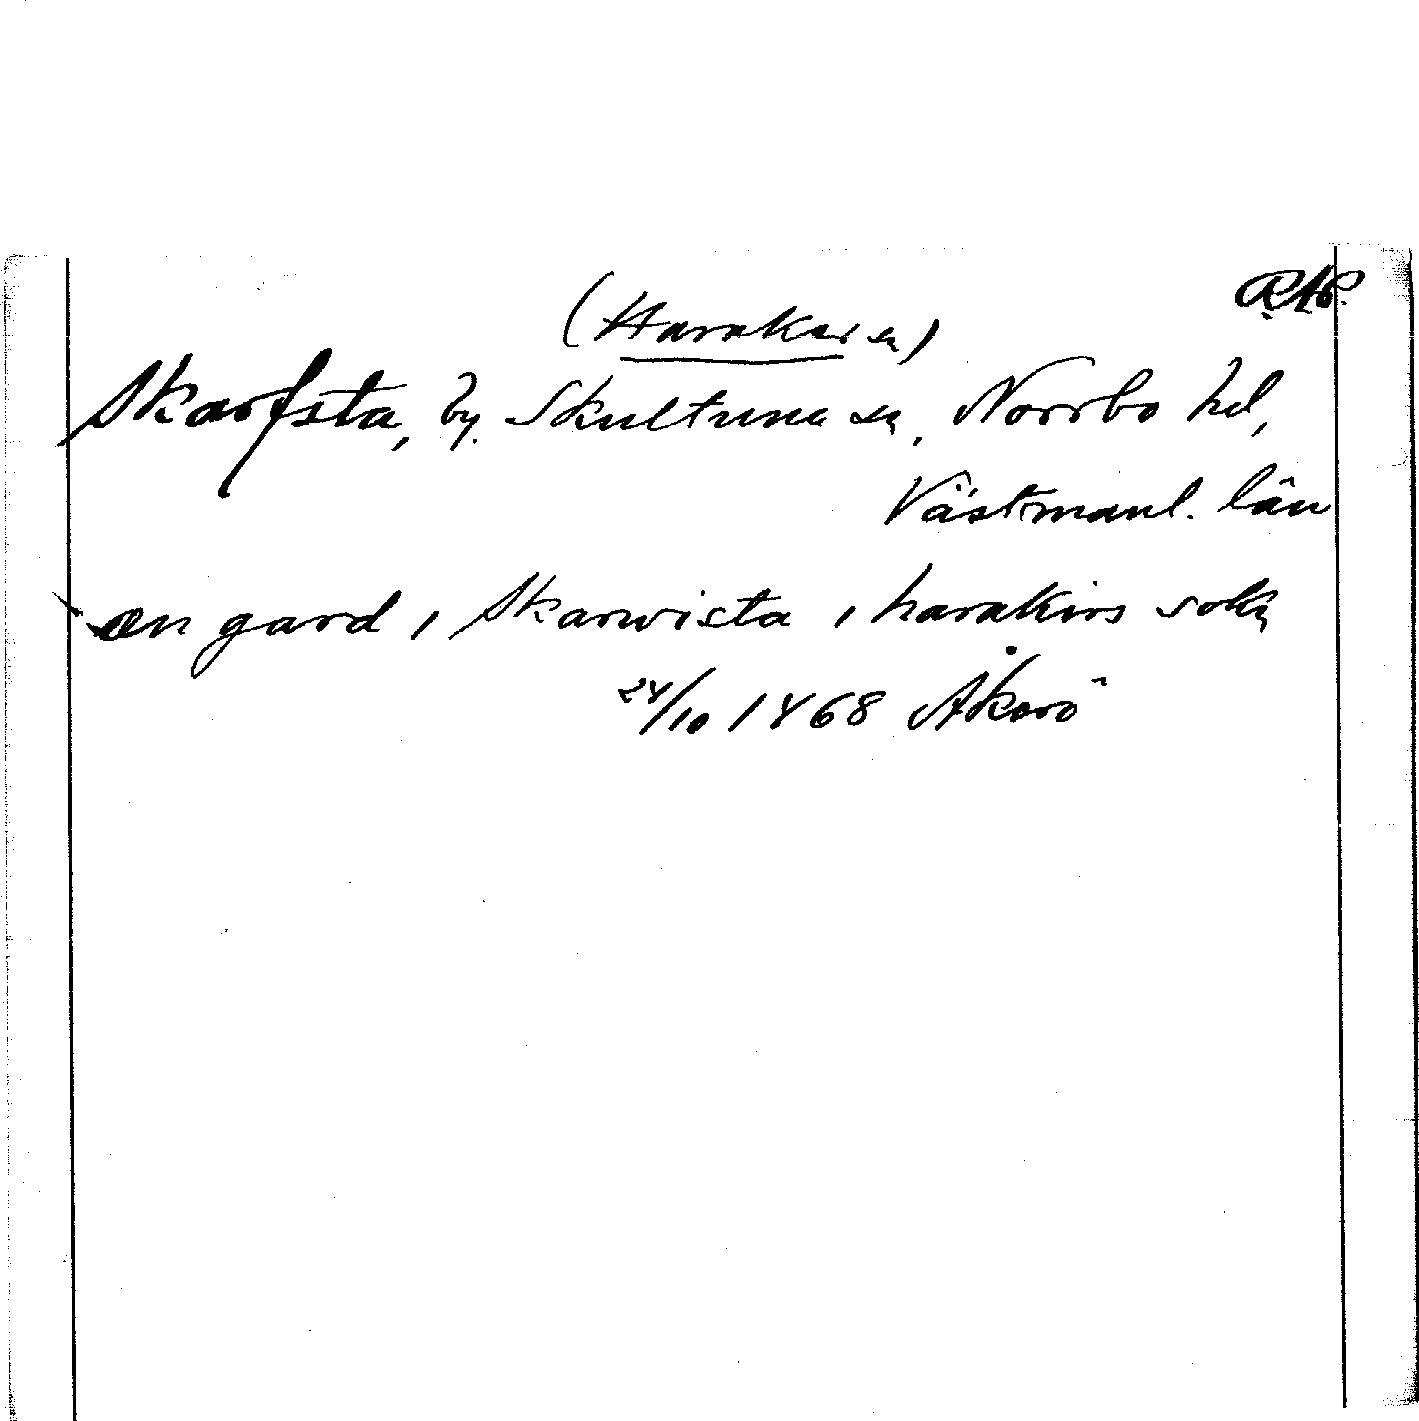 RAP.
(Harakers sn)
Skarfsta, by. Skultuna sn, Norrbo hd,
Västmanl. län
en gard i Skarwista i harakirs sokn
24/10 1468 Åkerö